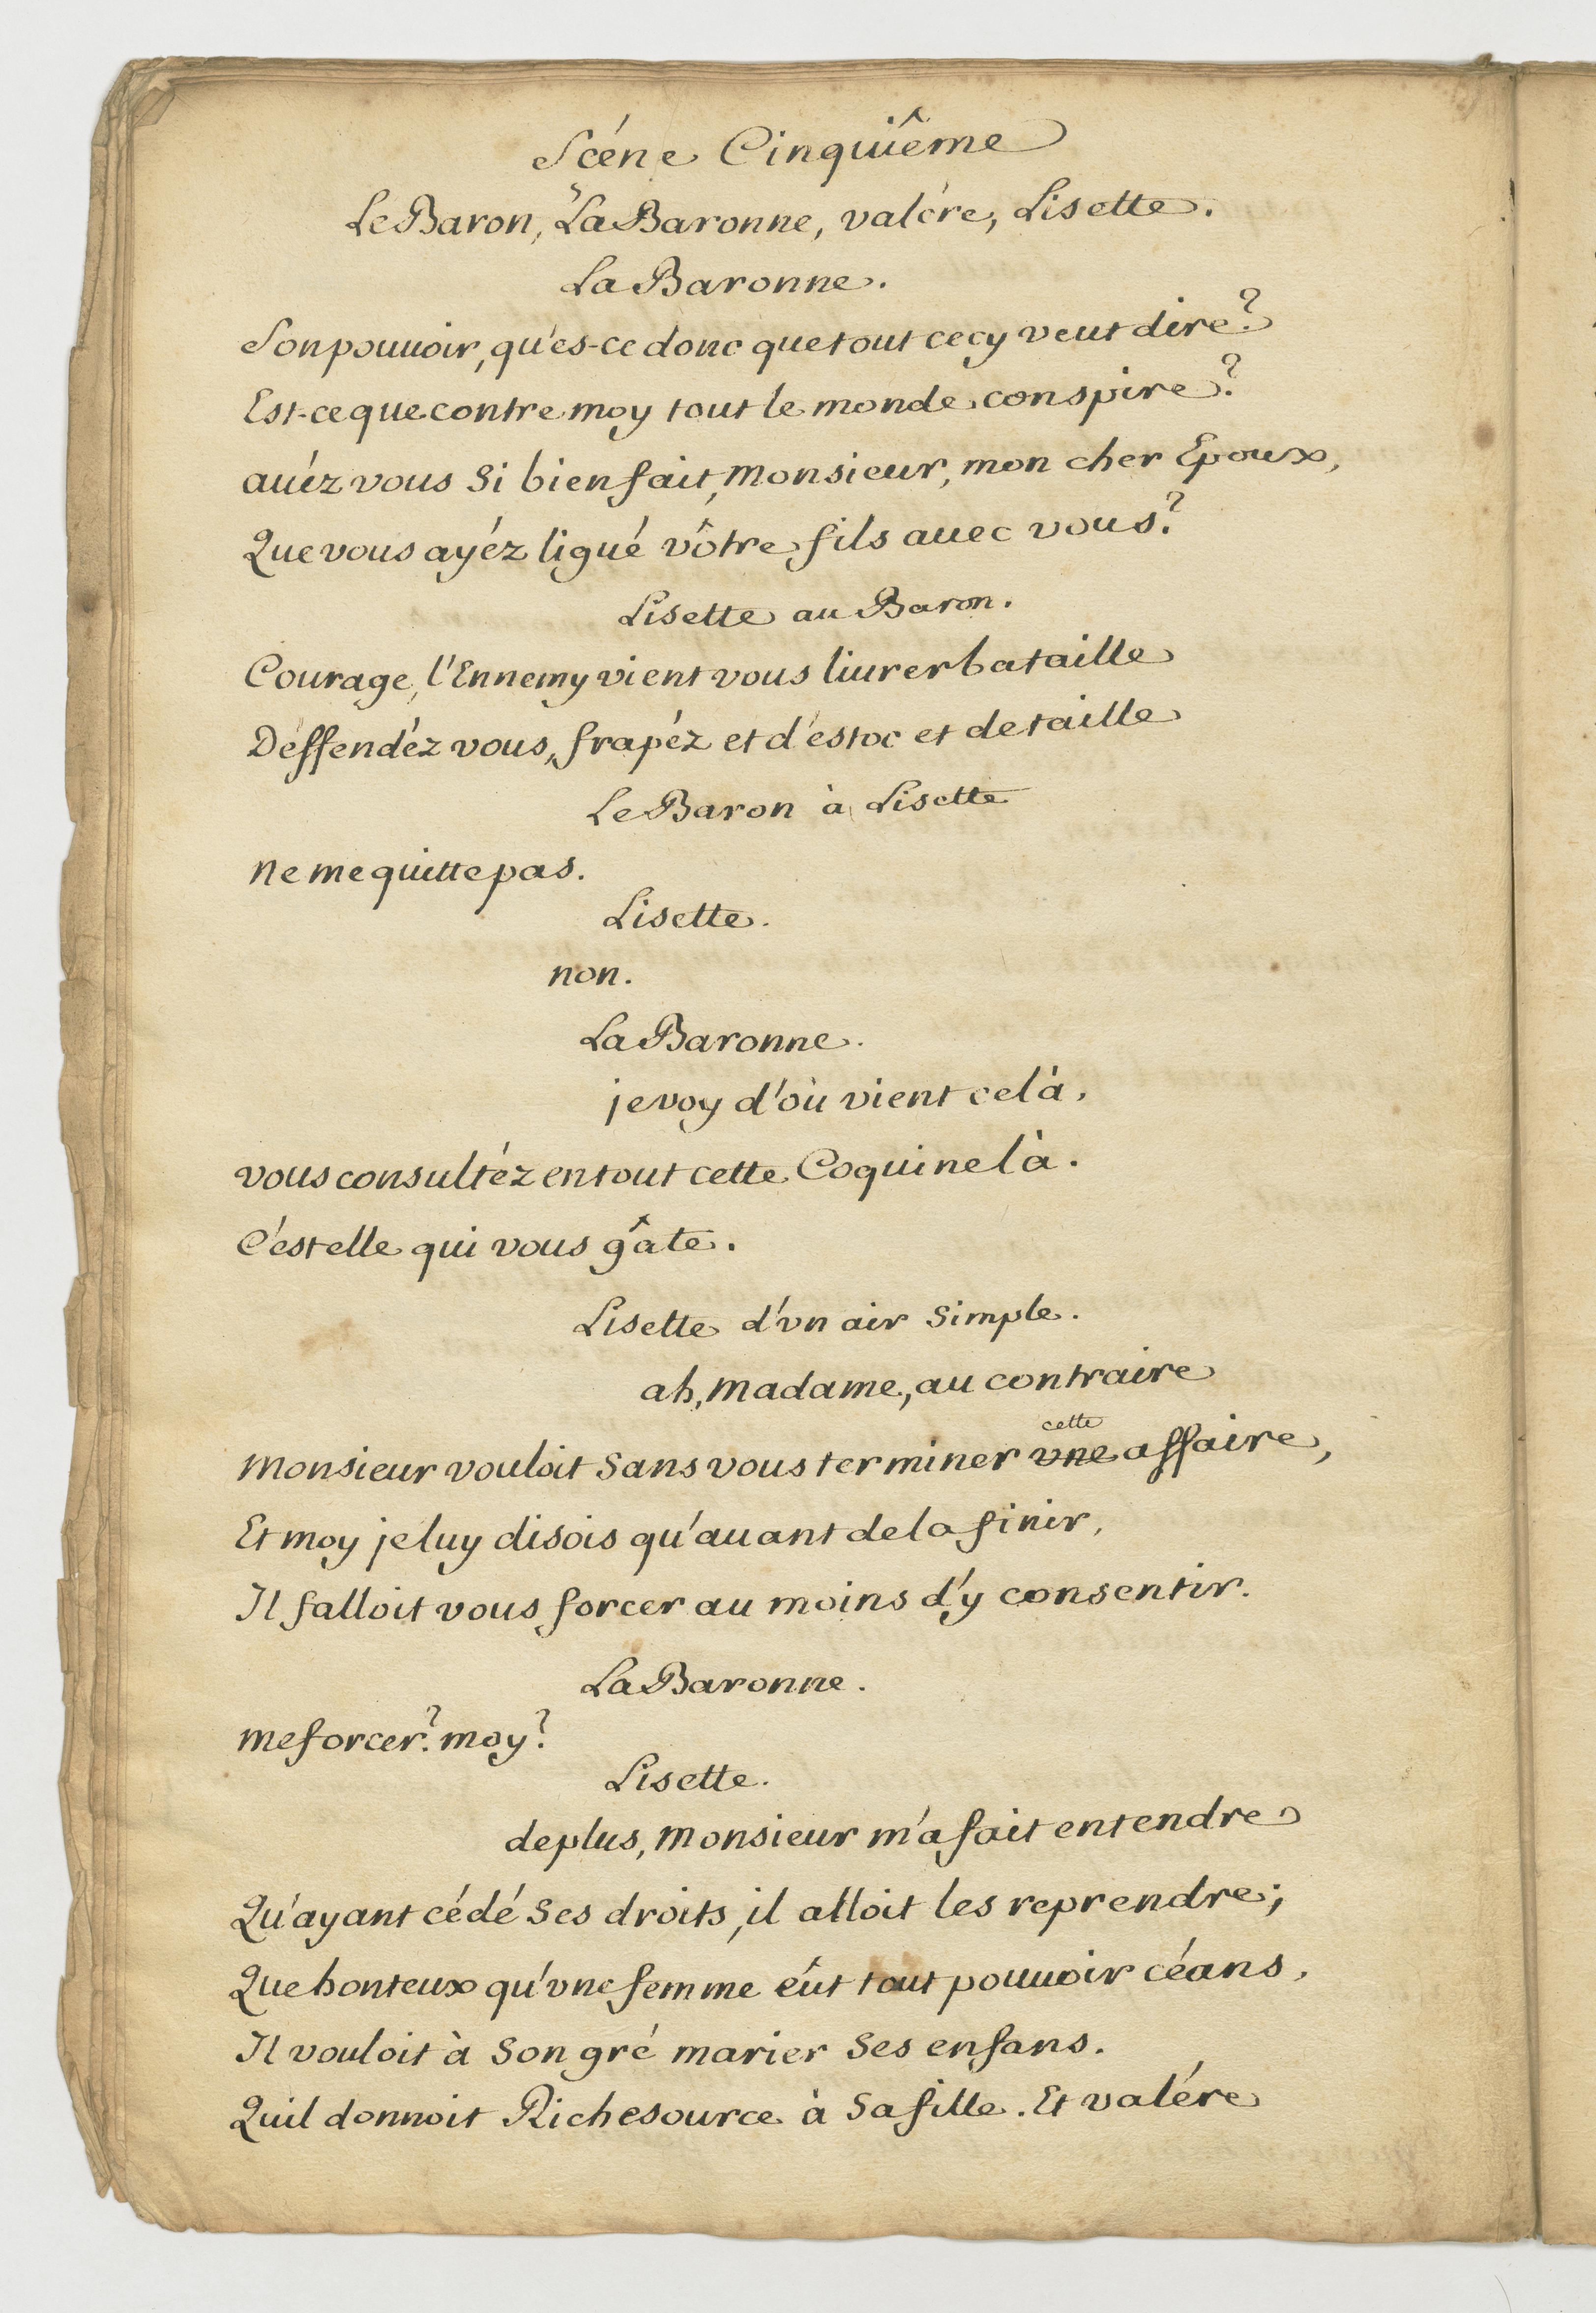 Scéne Cinquiême
Le Baron, La Baronne, valére, Lisette.
La Baronne.
Son pouuoir, qu'es-ce donc que tout cecy veut dire?
Est-ce que contre moy tout le monde conspire?
auéz vous Si bien fait, Monsieur, mon cher Epoux,
Que vous ayéz ligué vôtre fils auec vous?
Lisette au Baron.
Courage, l'Ennemy vient vous liurer bataille
Déffendéz vous, frapéz et d'éstoc et de taille
Le Baron à Lisette
Ne me quitte pas.
Lisette.
non.
La Baronne.
je voy d'où vient celà,
vous consultéz en tout cette Coquine là.
C'est elle qui vous gâte.
Lisette d'vn air Simple.
ah, Madame, au contraire
Monsieur vouloit Sans vous terminer vne cette affaire,
Et moy je luy disois qu'auant de la finir,
Il falloit vous forcer au moins d'y consentir.
La Baronne.
me forcer? moy?
Lisette.
de plus, Monsieur m'a fait entendre
Qu'ayant cédé Ses droits, il alloit les reprendre;
Que honteux qu'vne femme eût tout pouuoir céans,
Il vouloit à Son gré marier Ses enfans.
Quil donnoit Richesource à Sa fille. Et valére